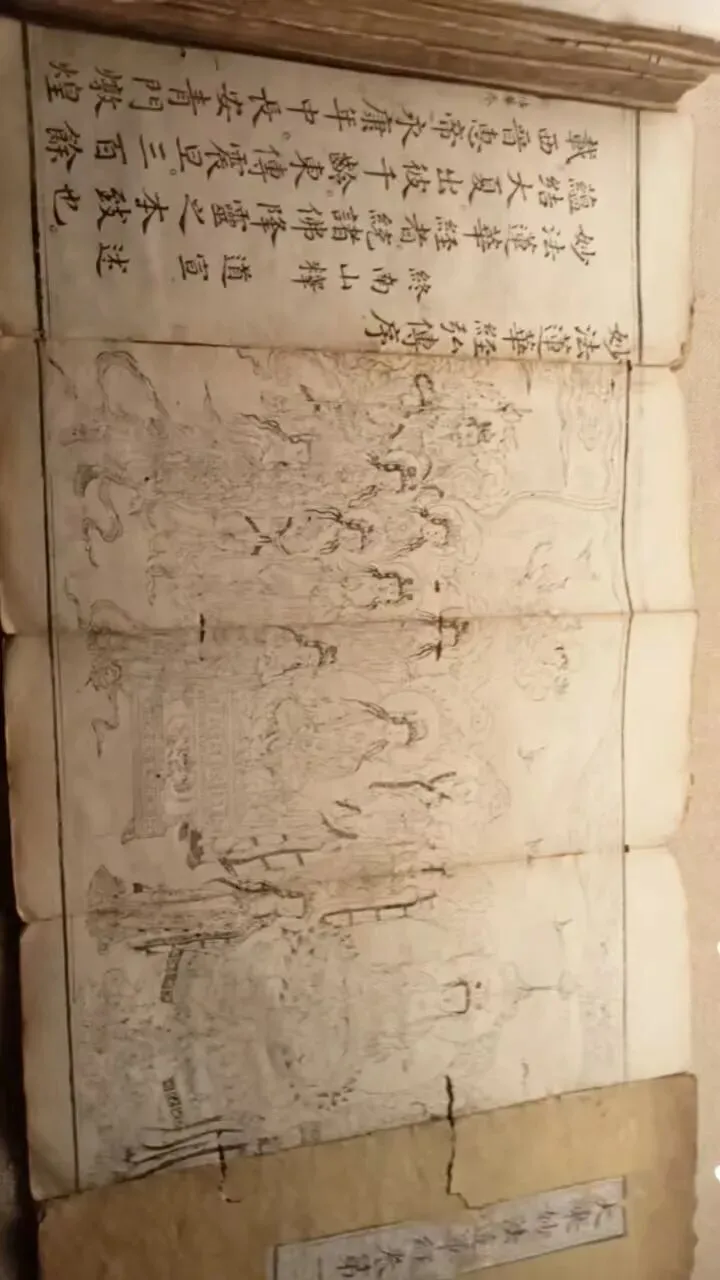 大乘妙法蓮華經卷第一
妙法蓮華經弘傳序
終南山釋道宣述
妙法蓮華經者統諸佛降靈之本致也。
蘊結大夏出彼千齡。東傳震旦。三百餘
載西晉惠帝永康年中。長安青門燉煌